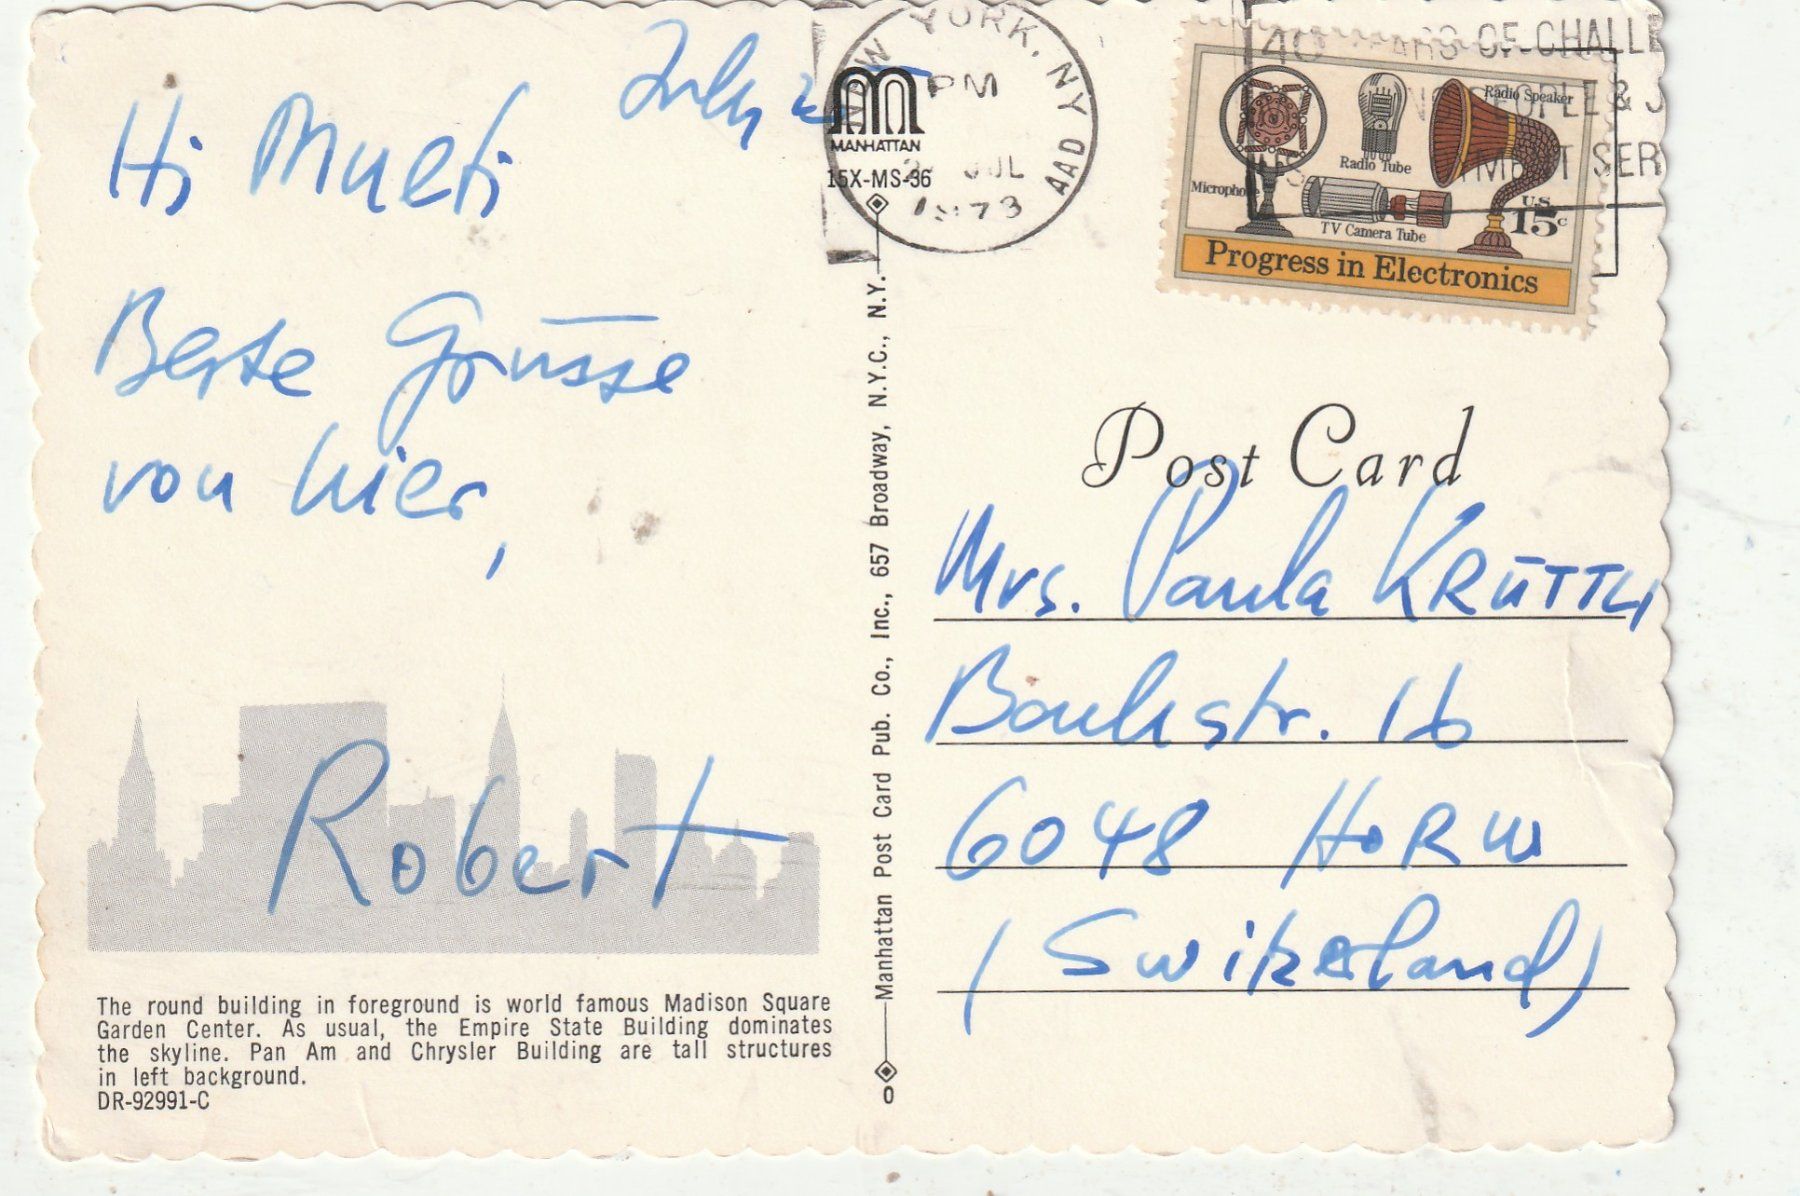 Hi Mueti
July
Beste Grüsse
von hier,
Robert
The round building in foreground is world famous Madison Square
Garden Center. As usual, the Empire State Building dominates
the skyline. Pan Am and Chrysler Building are tall structures
in left background.
DR-92991-C
MANHATTAN
15X-MS-36
Manhattan Post Card Pub. Co., Inc., 657 Broadway, N.Y.C., N.Y.
0
NEW YORK, NY
PM
JUL
1973
AAD
40 YEARS OF CHALL
PEOPLE & J
SER
Radio Speaker
Radio Tube
Microphone
TV Camera Tube
U.S.
15c
Progress in Electronics
Post Card
Mrs. Paula KRÜTTLI
Bachstr. 16
6048 HORW
(Switzerland)